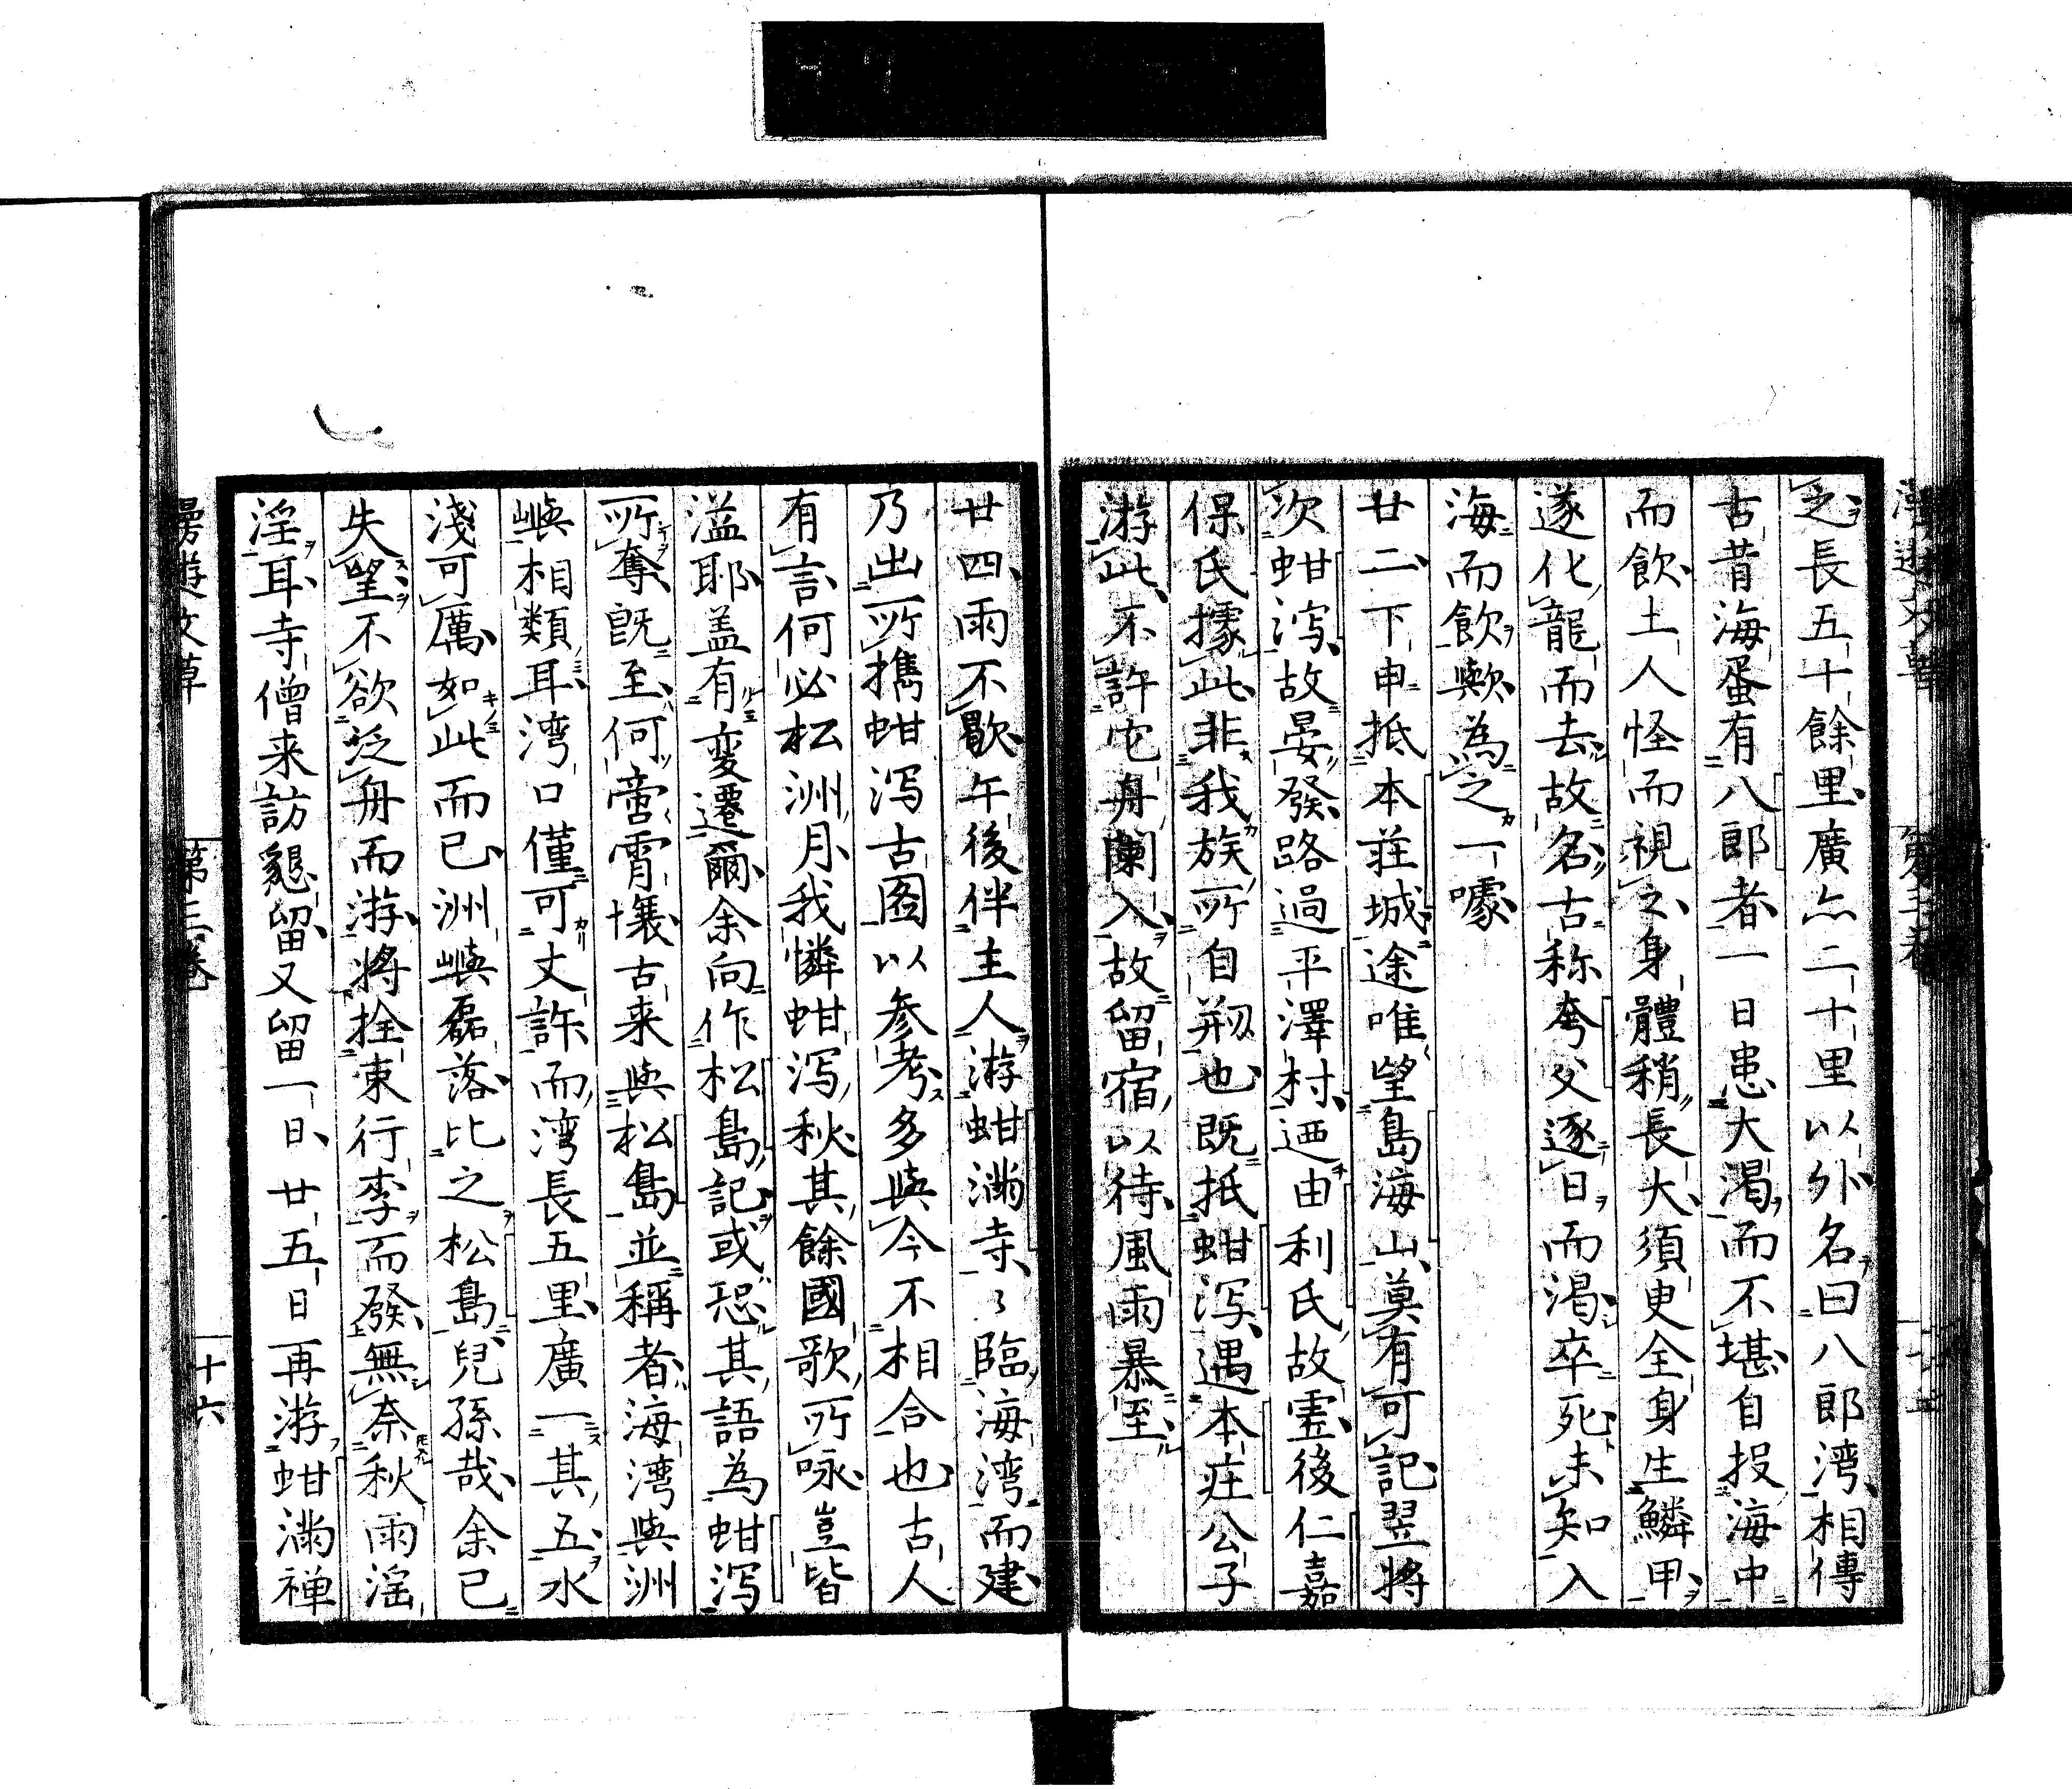 之長五十餘里廣亦二十里以外名曰八郎湾相傳
古昔海蛋有八郎者一日患大渴而不堪自投海中
而飲土人怪而視之身體稍長大須臾全身生鱗甲
遂化龍而去故名古称夸父逐日而渴卒死未知入
海而飲歟為之一噱
廿二下申抵本荘城途唯望島海山莫有可記翌将
次蚶泻故晏發路過平澤村迺由利氏故墟後仁嘉
保氏據此非我族所自剏也既抵蚶泻遇本庄公子
游此不許它舟闌入故留宿以待風雨暴至
廿四雨不歇午後伴主人游蚶満寺々臨海湾而建
乃出所携蚶泻古圖以参考多與今不相合也古人
有言何必松洲月我憐蚶泻秋其餘國歌所咏豈皆
溢耶盖有変遷爾余向作松島記或恐其語為蚶泻
所奪既至何啻霄壤古来與松島並稱者海湾與洲
嶼相類耳湾口僅可丈許而湾長五里廣一其五水
淺可厲如此而已洲嶼磊落比之松島兒孫哉余已
失望不欲泛舟而游將拴束行李而發無奈秋雨淫
淫耳寺僧来訪懇留又留一日廿五日再游蚶満禅
漫遊文草
第三巻
十六